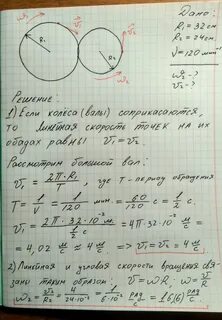 Дано:
R₁ = 32 см
R₂ = 24 см
ν = 120 мин⁻¹
ω₂ - ?
v₂ - ?
R₁
v₁
v₂
R₂
ω₂
Решение:
1) Если колёса (валы) соприкасаются,
то линейная скорость точек на их
ободах равны v₁ = v₂.
Рассмотрим большой вал:
v₁ = 2π·R₁/T, где T - период обращения
T = 1/ν = 1/120 мин. = 60/120 с = 1/2 с.
v₁ = 2π·32·10⁻² м / (1/2 с) = 4π·32·10⁻² м/с =
= 4,02 м/с ≈ 4 м/с => v₁ = v₂ = 4 м/с
2) Линейная и угловая скорости вращения свя-
заны таким образом: v = ωR; ω = v/R
ω₂ = v₂/R₂ = 4/(24·10⁻²) = 1/(6·10⁻²) рад/с = 16,(6) рад/с